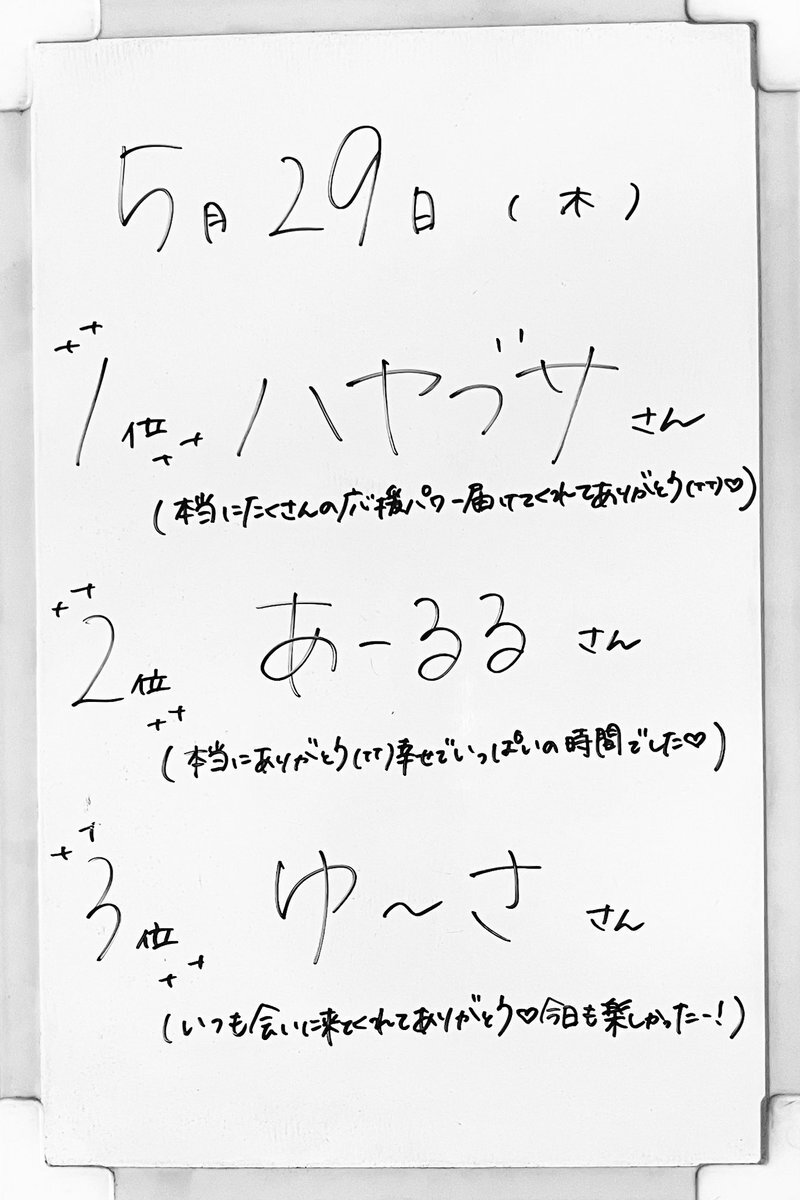 5月29日(木)
1位 ハヤブサさん
(本当にたくさんの応援パワー届けてくれてありがとう(TT)♡)
2位 あーるるさん
(本当にありがとう(TT)幸せでいっぱいの時間でした♡)
3位 ゆ〜ささん
(いつも会いに来てくれてありがとう♡今日も楽しかったー!)